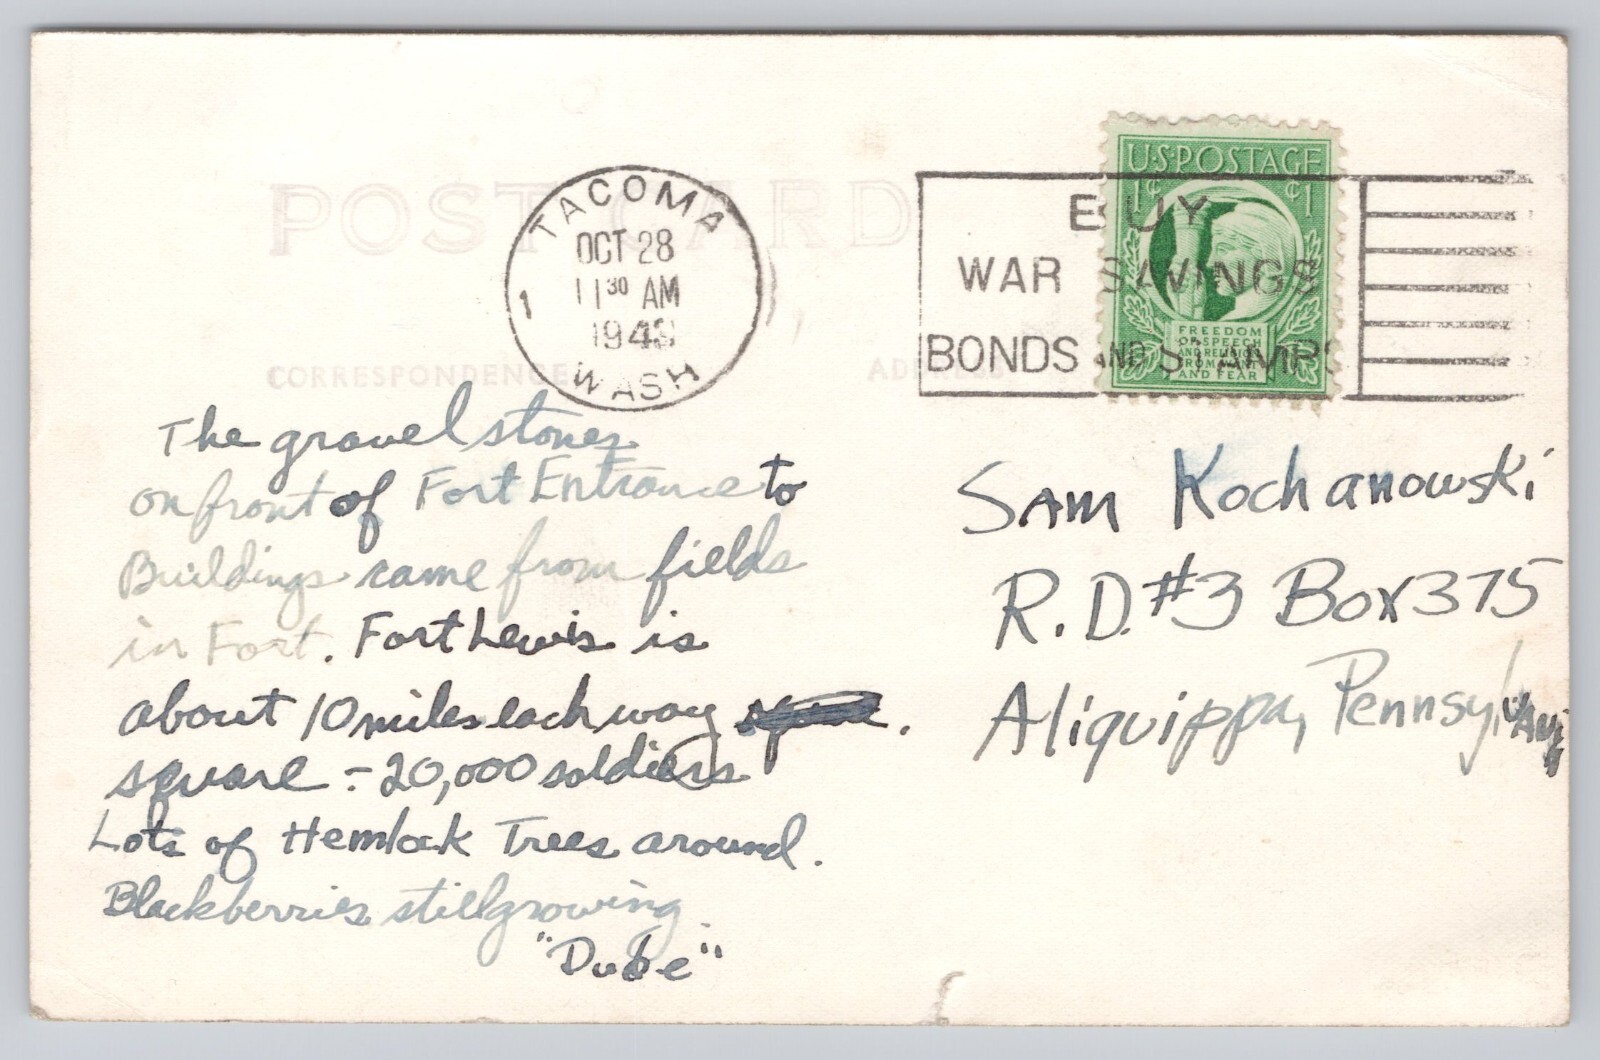 POST CARD
TACOMA
OCT 28
11 30 AM
1943
1
WASH
BUY
WAR SAVINGS
BONDS AND STAMPS
U.S. POSTAGE
1¢ ¢1
FREEDOM
OF SPEECH
AND RELIGION
FROM WANT
AND FEAR
CORRESPONDENCE
ADDRESS
The gravel stones
on front of Fort Entrance to
Buildings came from fields
in Fort. Fort Lewis is
about 10 miles each way .
square - 20,000 soldiers
Lots of Hemlock Trees around.
Blackberries still growing.
"Dube"
Sam Kochanowski
R.D. #3 Box 375
Aliquippa, Pennsylvania